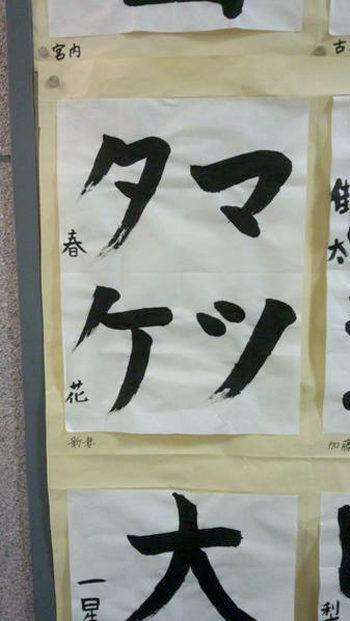 宮内
古
マツ
タケ
春花
新妻
加藤
大
一星
利